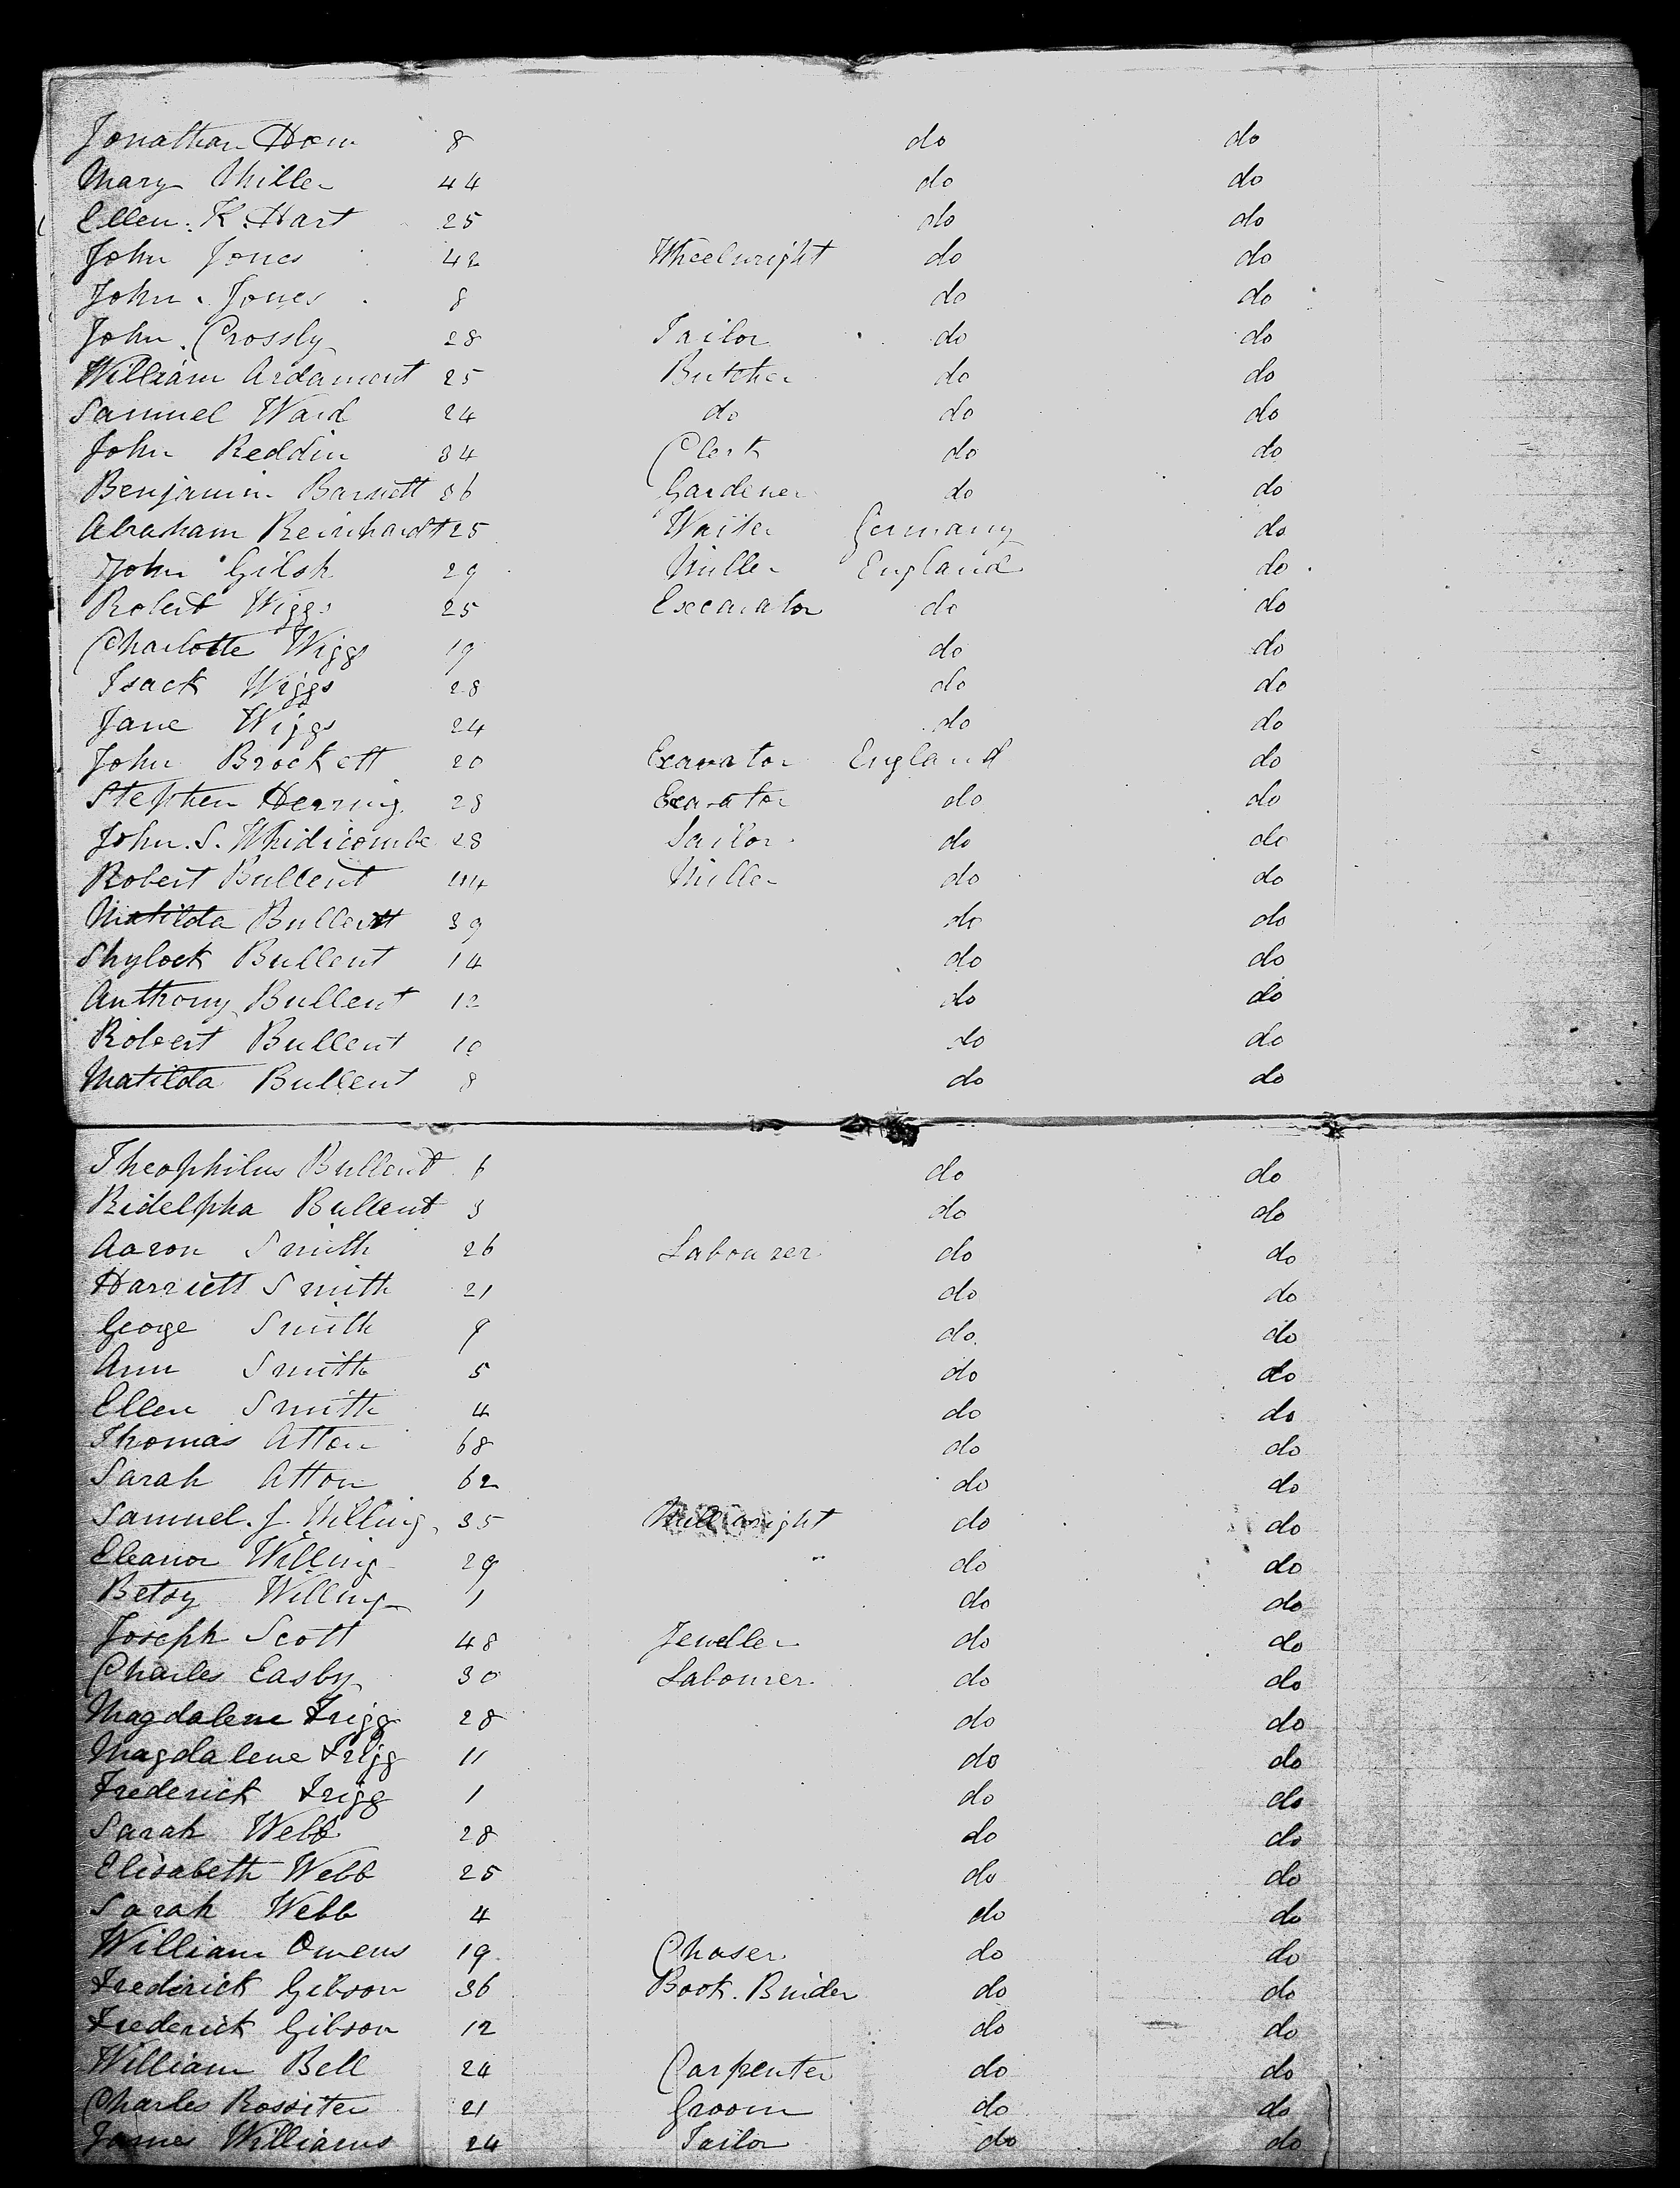 Jonathan Horn 8 do do
Mary Miller 44 do do
Ellen. K. Hart 25 do do
John Jones 42 Wheelwright do do
John. Jones 8 do do
John. Crossly 28 Tailor do do
William Ardament 25 Butcher do do
Samuel Ward 24 do do do
John Reddin 34 Clerk do do
Benjamin Barnett 36 Gardener do do
Abraham Reinhardt 25 Waiter Germany do
John Gilsh 29 Miller England do
Robert Wiggs 25 Excavator do do
Charlotte Wiggs 19 do do
Isack Wiggs 28 do do
Jane Wiggs 24 do do
John Brockett 20 Exavator England do
Stephen Herring 28 Exavator do do
John. S. Whidicombe 28 Sailor do do
Robert Bullent 44 Miller do do
Matilda Bullent 39 do do
Shylock Bullent 14 do do
Anthony Bullent 12 do do
Robert Bullent 10 do do
Matilda Bullent 8 do do
Theophilus Bullent 6 do do
Ridelpha Bullent 3 do do
Aaron Smith 26 Labourer do do
Harriett Smith 21 do do
George Smith 9 do do
Ann Smith 5 do do
Ellen Smith 4 do do
Thomas Atton 68 do do
Sarah Atton 62 do do
Samuel. J. Willing 35 Millwright do do
Eleanor Willing 29 do do
Betsy Willing 1 do do
Joseph Scott 48 Jeweller do do
Charles Easby 30 Labourer do do
Magdalene Frigg 28 do do
Magdalene Frigg 11 do do
Frederick Frigg 1 do do
Sarah Webb 28 do do
Elisabeth Webb 25 do do
Sarah Webb 4 do do
William Owens 19 Chaser do do
Frederick Gibson 36 Book. Binder do do
Frederick Gibson 12 do do
William Bell 24 Carpenter do do
Charles Rossiter 21 Groom do do
James Williams 24 Tailor do do